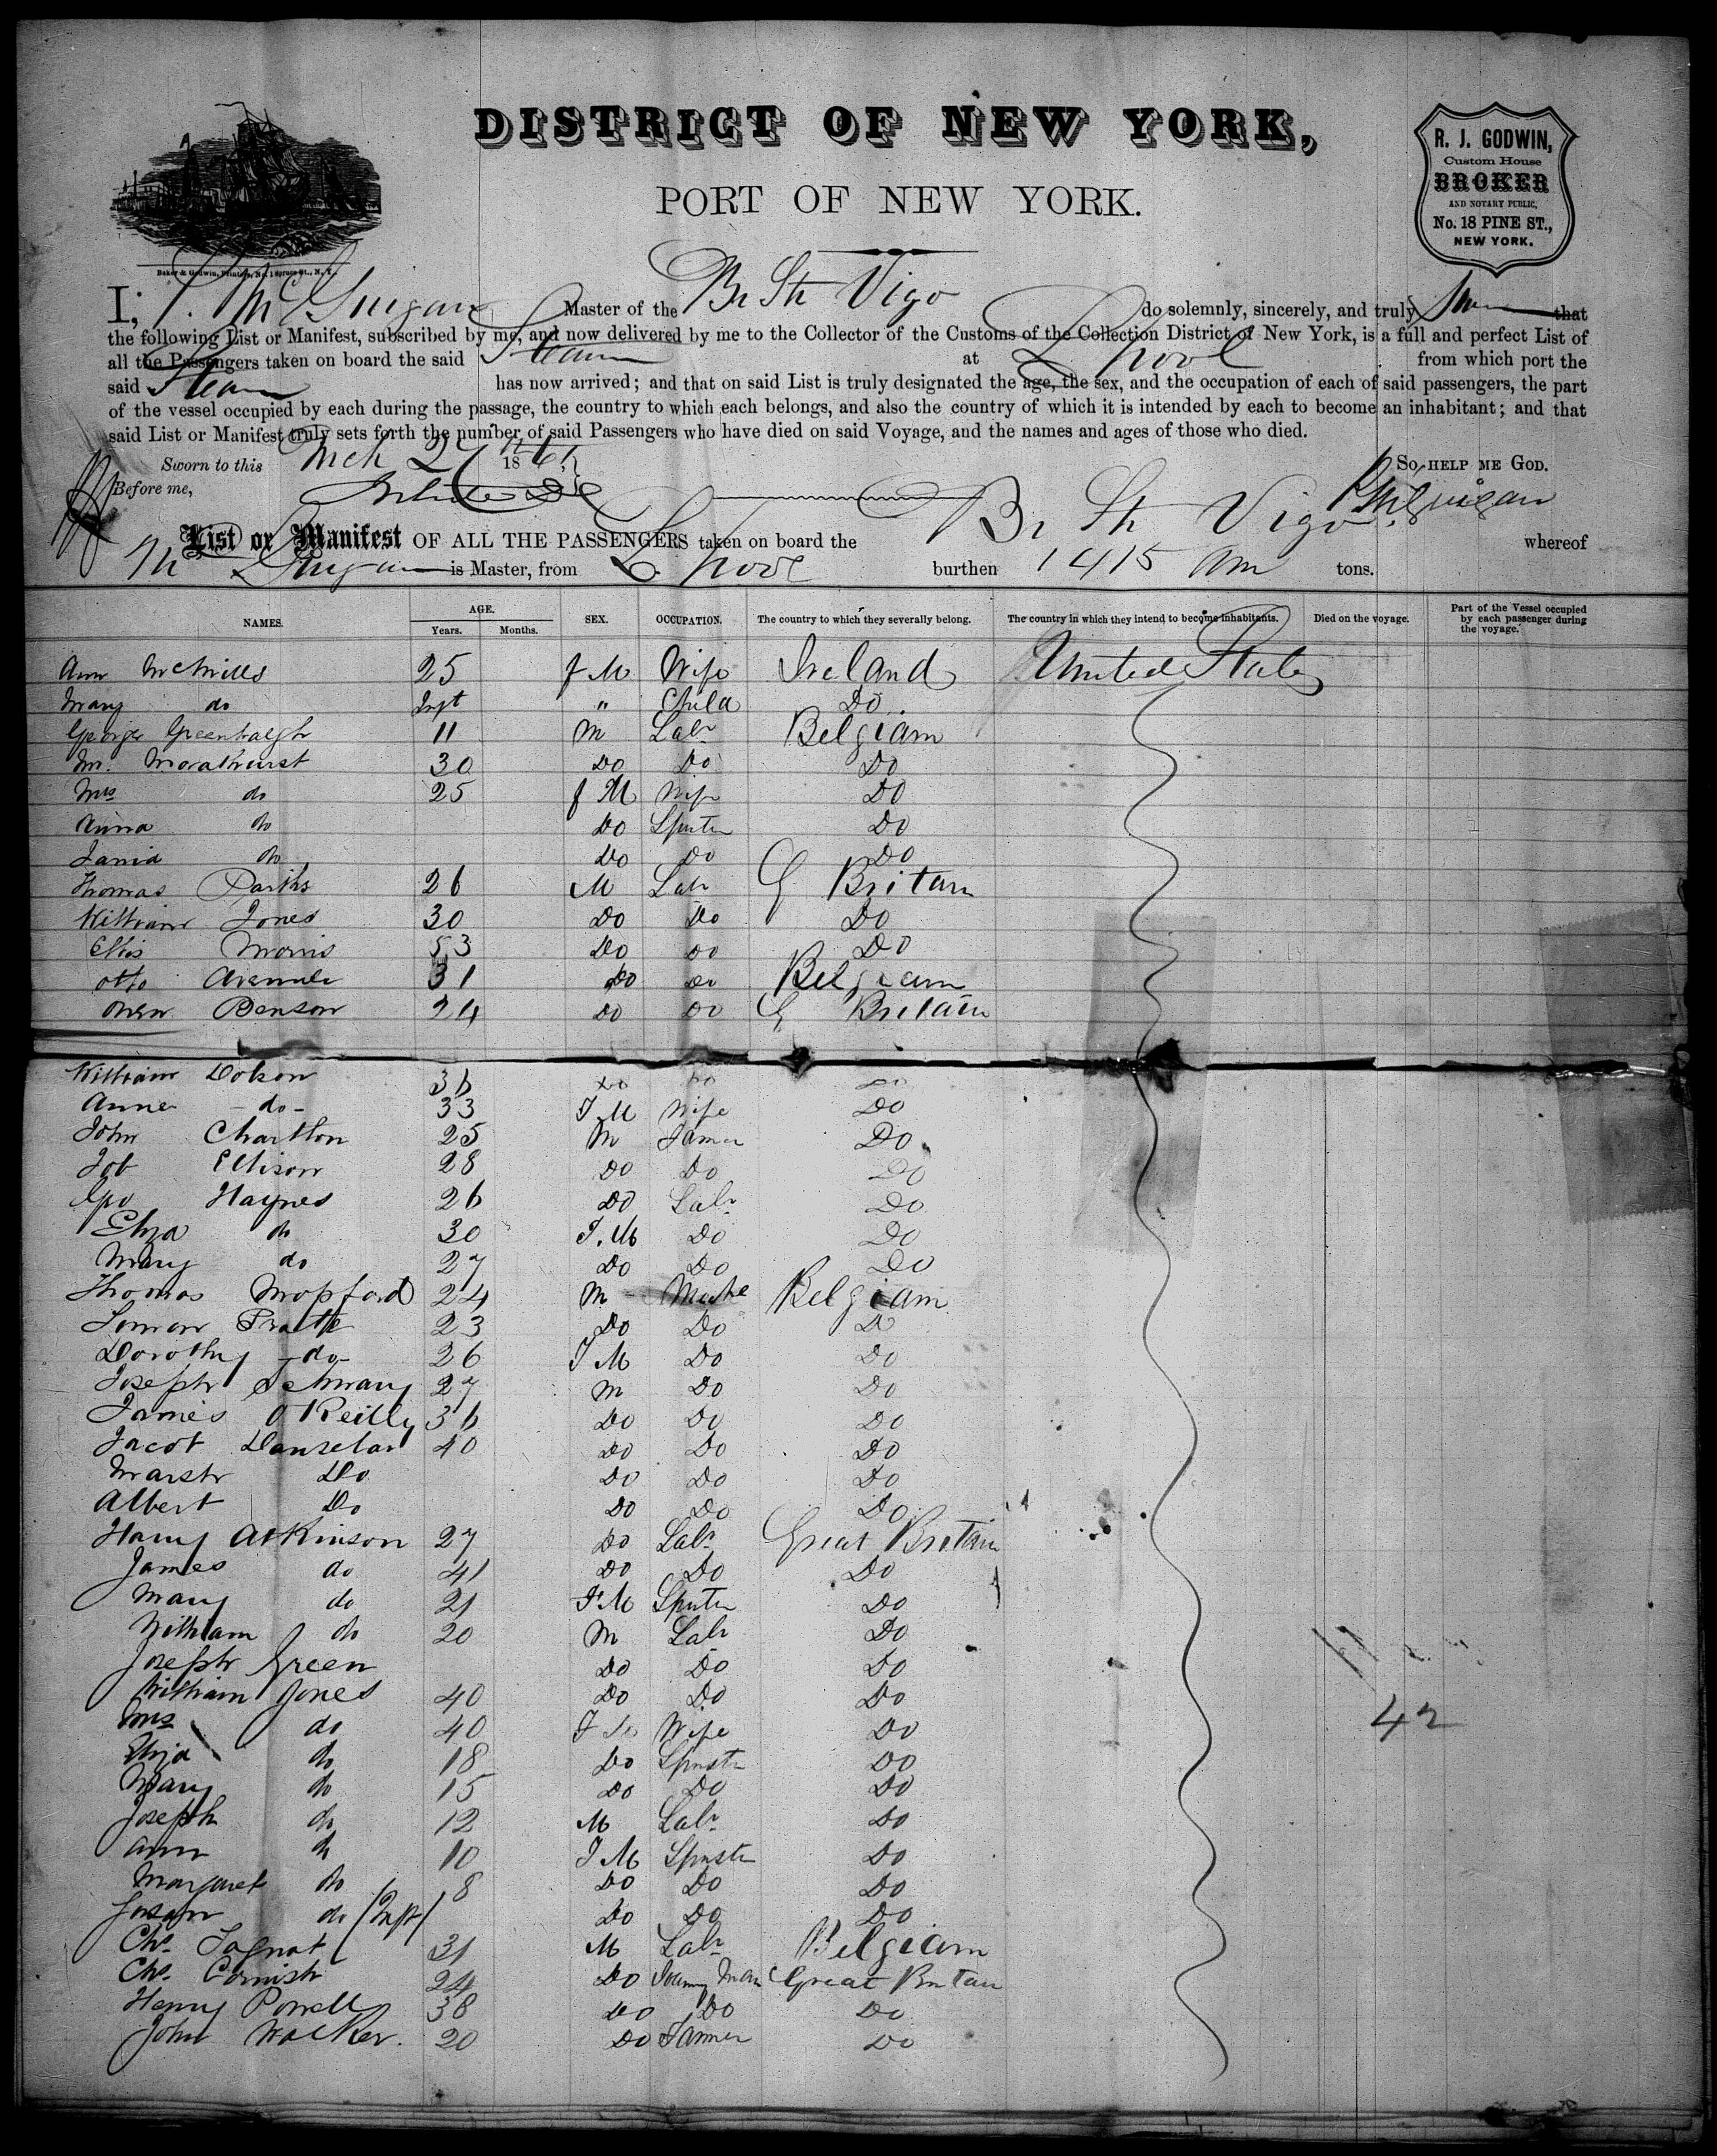 DISTRICT OF NEW YORK,
PORT OF NEW YORK.
R. J. GODWIN,
Custom House
BROKER
AND NOTARY PUBLIC,
No. 18 PINE ST.,
NEW YORK.
Baker & Godwin, Printers, No. 1 Spruce St., N. Y.
I, P. McGuigan Master of the Br Str Vigo do solemnly, sincerely, and truly that
the following List or Manifest, subscribed by me, and now delivered by me to the Collector of the Customs of the Collection District of New York, is a full and perfect List of
all the Passengers taken on board the said Steam at L'pool from which port the
said Steam has now arrived; and that on said List is truly designated the age, the sex, and the occupation of each of said passengers, the part
of the vessel occupied by each during the passage, the country to which each belongs, and also the country of which it is intended by each to become an inhabitant; and that
said List or Manifest truly sets forth the number of said Passengers who have died on said Voyage, and the names and ages of those who died.
Sworn to this Mch 27 186 So HELP ME GOD.
Before me, P McGuigan
List or Manifest OF ALL THE PASSENGERS taken on board the Br Str Vigo whereof
McGuigan is Master, from L'pool burthen 1415 tons.
NAMES. AGE. SEX. OCCUPATION. The country to which they severally belong. The country in which they intend to become inhabitants. Died on the voyage. Part of the Vessel occupied by each passenger during the voyage.
Years. Months.
Ann 25 f M Wife Ireland United States
Mary do Inft " Child Do
George Greenhalgh 11 M Labr Belgiam
M. 30 Do Do Do
Mrs do 25 f M Wife Do
Anna do Do Spister Do
do Do Do Do
Thomas 26 M Labr G Britain
William Jones 30 Do Do Do
Ellis Morris 53 Do Do Do
Otto 31 Do Do Belgiam
Owen Benson 24 Do Do G Britain
William Dobson 36 Do Do Do
Anne -do- 33 F M Wife Do
John Charlton 25 M Farmer Do
Job Ellison 28 Do Do Do
Geo Haynes 26 Do Labr Do
Eliza do 30 F. M Do Do
Mary do 27 Do Do Do
Thomas 24 M Belgiam
23 Do Do Do
Dorothy -do- 26 F M Do Do
Joseph 27 M Do Do
James O'Reilly 36 Do Do Do
Jacob 40 Do Do Do
Do Do Do Do
Albert Do Do Do Do
Harry Atkinson 27 Do Labr Great Britain
James do 41 Do Do Do
Mary do 21 F M Spister Do
William do 20 M Labr Do
Joseph Green Do Do Do
William Jones 40 Do Do Do
Mrs do 40 F M Wife Do
42
Eliza do 18 Do Spinstr Do
Mary do 15 Do Do Do
Joseph do 12 M Labr Do
Ann do 10 F M Spinstr Do
Margaret do 8 Do Do Do
do (Inft) Do Do Do
Chs. 31 M Labr Belgiam
Chs. Cornish 24 Do Great Britain
Henry Powell 38 Do Do Do
John Walker. 20 Do Farmer Do